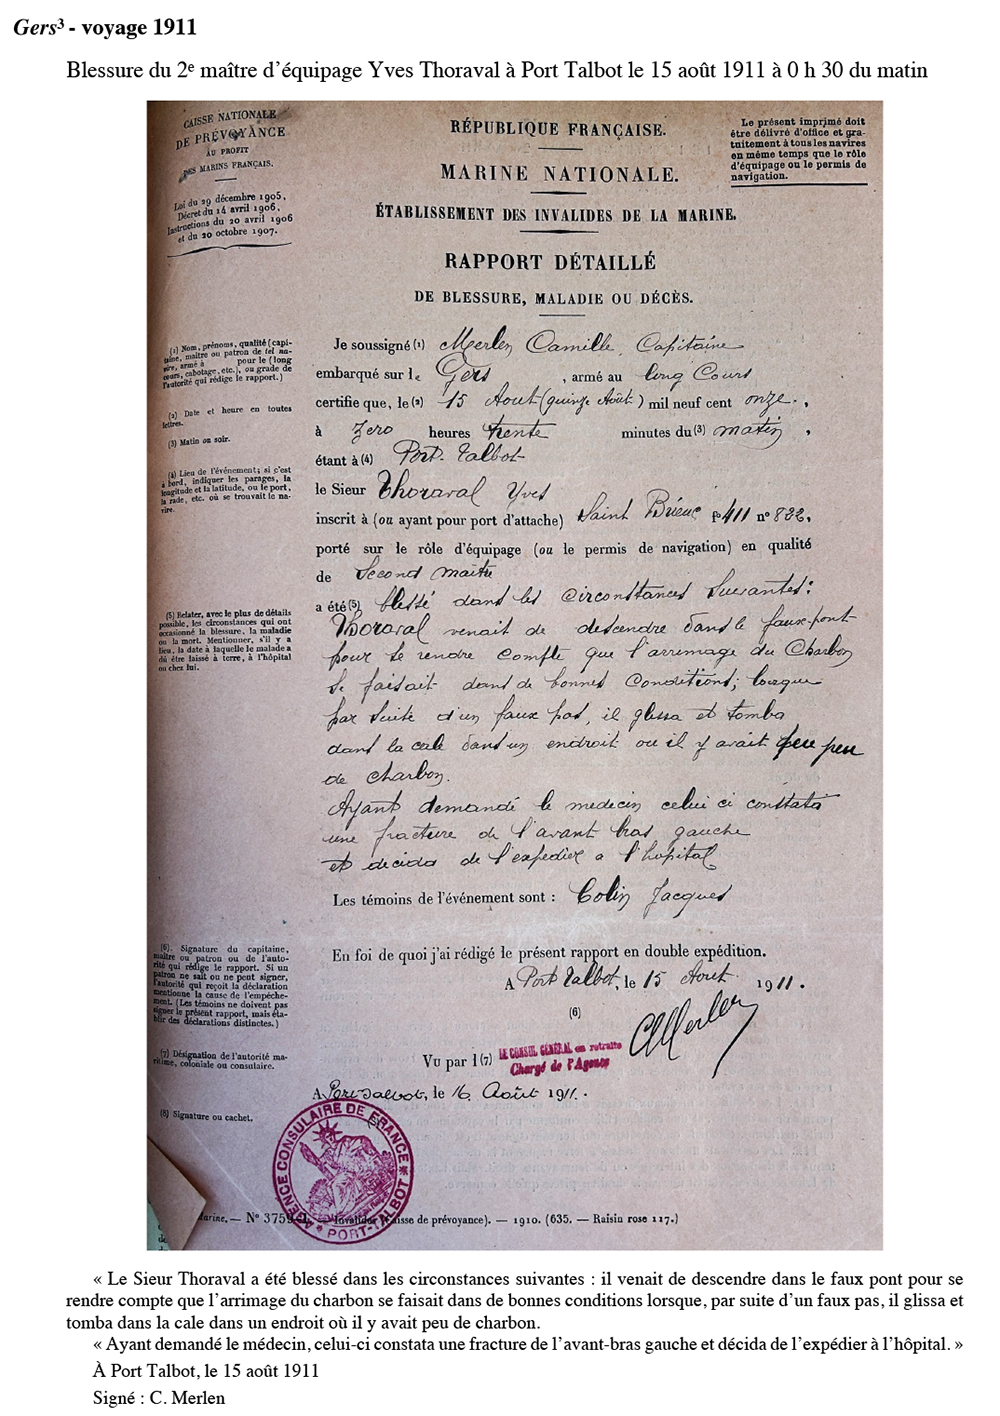 Gers³ - voyage 1911
Blessure du 2e maître d’équipage Yves Thoraval à Port Talbot le 15 août 1911 à 0 h 30 du matin
CAISSE NATIONALE
DE PRÉVOYANCE
AU PROFIT
DES MARINS FRANÇAIS.
Loi du 29 décembre 1905,
Décret du 14 avril 1906,
Instructions du 20 avril 1906
et du 20 octobre 1907.
RÉPUBLIQUE FRANÇAISE.
MARINE NATIONALE.
ÉTABLISSEMENT DES INVALIDES DE LA MARINE.
Le présent imprimé doit
être délivré d'office et gra-
tuitement à tous les navires
en même temps que le rôle
d'équipage ou le permis de
navigation.
RAPPORT DÉTAILLÉ
DE BLESSURE, MALADIE OU DÉCÈS.
(1) Nom, prénoms, qualité (capi-
taine, maître ou patron de tel na-
vire, armé à pour le (long
cours, cabotage, etc.), ou grade de
l'autorité qui rédige le rapport.)
(2) Date et heure en toutes
lettres.
(3) Matin ou soir.
(4) Lieu de l'événement; si c'est
à bord, indiquer les parages, la
longitude et la latitude, ou le port,
la rade, etc. où se trouvait le na-
vire.
(5) Relater, avec le plus de détails
possible, les circonstances qui ont
occasionné la blessure, la maladie
ou la mort. Mentionner, s'il y a
lieu, la date à laquelle le malade a
dû être laissé à terre, à l'hôpital
ou chez lui.
Je soussigné (1) Merlen Camille, Capitaine
embarqué sur le Gers, armé au long Cours
certifie que, le (2) 15 Aout (quinze Août) mil neuf cent onze.,
à Zero heures trente minutes du (3) matin,
étant à (4) Port-Talbot
le Sieur Thoraval Yves
inscrit à (ou ayant pour port d'attache) Saint Brieuc fo 411 n° 822,
porté sur le rôle d'équipage (ou le permis de navigation) en qualité
de Second maître
a été (5) blessé dans les circonstances Suivantes:
Thoraval venait de descendre dans le faux-pont
pour se rendre compte que l'arrimage du Charbon
se faisait dans de bonnes Conditions; lorsque
par suite d'un faux pas, il glissa et tomba
dans la cale dans un endroit ou il y avait peu peu
de charbon.
Ayant demandé le medecin celui ci constata
une fracture de l'avant bras gauche
et decida de l'expedier a l'hopital
Les témoins de l'événement sont : Colin Jacques
En foi de quoi j'ai rédigé le présent rapport en double expédition.
A Port Talbot, le 15 Aout 1911.
(6)
CMerlen
(6). Signature du capitaine,
maître ou patron ou de l'auto-
rité qui rédige le rapport. Si un
patron ne sait ou ne peut signer,
l'autorité qui reçoit la déclaration
mentionne la cause de l'empêche-
ment. (Les témoins ne doivent pas
signer le présent rapport, mais éta-
blir des déclarations distinctes.)
(7) Désignation de l'autorité ma-
ritime, coloniale ou consulaire.
(8) Signature ou cachet.
Vu par l (7) LE CONSUL GÉNÉRAL en retraite
Chargé de l'Agence
A Port Talbot, le 16 Août 1911.
(8)
AGENCE CONSULAIRE DE FRANCE
PORT-TALBOT
Marine. — N° 3759 Invalides (Caisse de prévoyance). — 1910. (635. — Raisin rose 117.)
« Le Sieur Thoraval a été blessé dans les circonstances suivantes : il venait de descendre dans le faux pont pour se
rendre compte que l’arrimage du charbon se faisait dans de bonnes conditions lorsque, par suite d’un faux pas, il glissa et
tomba dans la cale dans un endroit où il y avait peu de charbon.
« Ayant demandé le médecin, celui-ci constata une fracture de l’avant-bras gauche et décida de l’expédier à l’hôpital. »
À Port Talbot, le 15 août 1911
Signé : C. Merlen